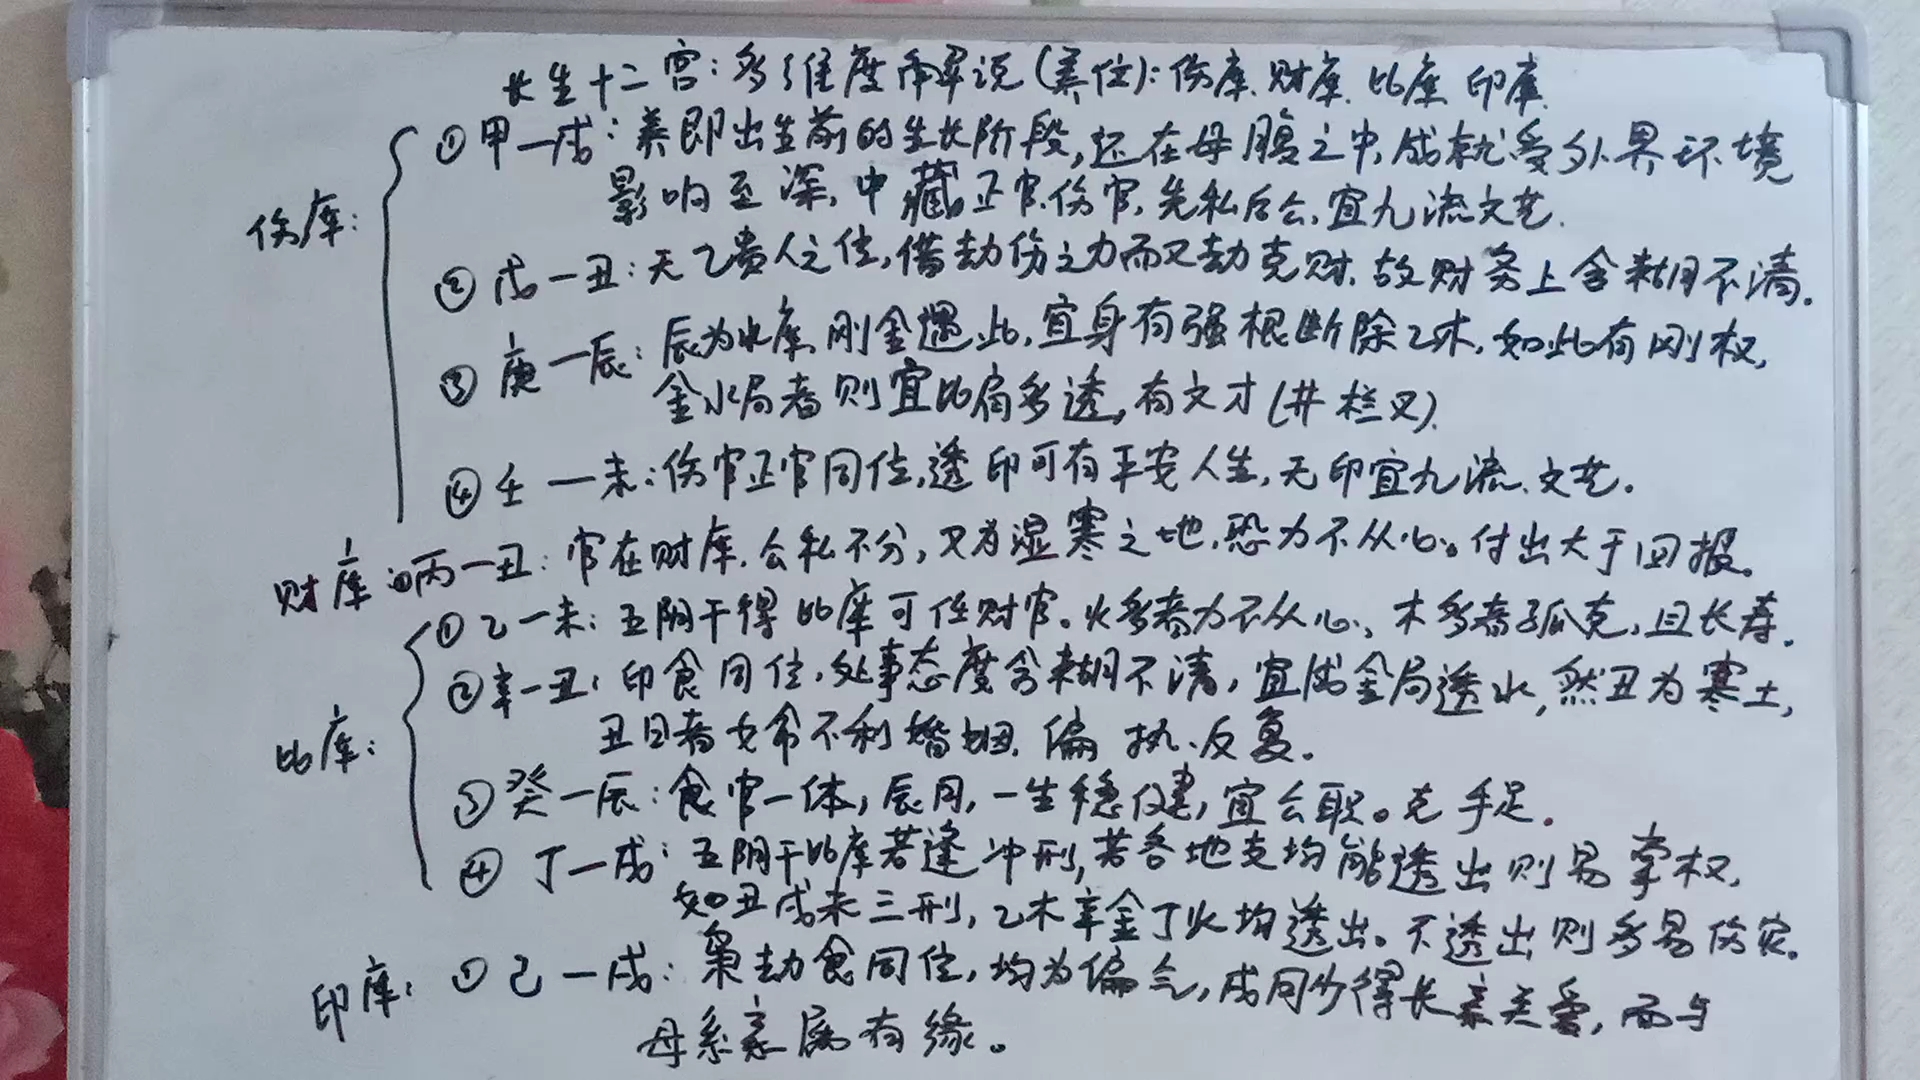 长生十二宫:多维度解说(养位):伤库.财库.比库 印库.
伤库:
①甲一戌:养即出生前的生长阶段,还在母腹之中,成就受外界环境
影响至深,中藏正官.伤官,先私后公,宜九流文艺.
②戊一丑:天乙贵人之位,借劫伤之力而又劫克财,故财务上含糊不清.
③庚一辰:辰为水库,刚金遇此,宜身有强根断除乙木,如此有刚权,
金水局者则宜比肩多透,有文才(井栏叉).
④壬一未:伤官正官同位,透印可有平安人生,无印宜九流、文艺.
财库:①丙一丑:官在财库.公私不分,又为湿寒之地,恐力不从心。付出大于回报。
比库:
①乙一未:五阴干得比库可任财官。火多者力不从心、木多者孤克,且长寿.
②辛一丑:印食同位,处事态度含糊不清,宜成金局透水,然丑为寒土,
丑日者女命不利婚姻.偏执、反复.
③癸一辰:食官一体,辰月,一生稳健,宜公职。克手足.
④丁一戌:五阴干比库若逢冲刑,若各地支均能透出则易掌权,
如丑戌未三刑,乙木辛金丁火均透出。不透出则多易伤灾.
印库:①己一戌:枭劫食同位,均为偏气,戌月少得长亲关爱,而与
母系亲属有缘。